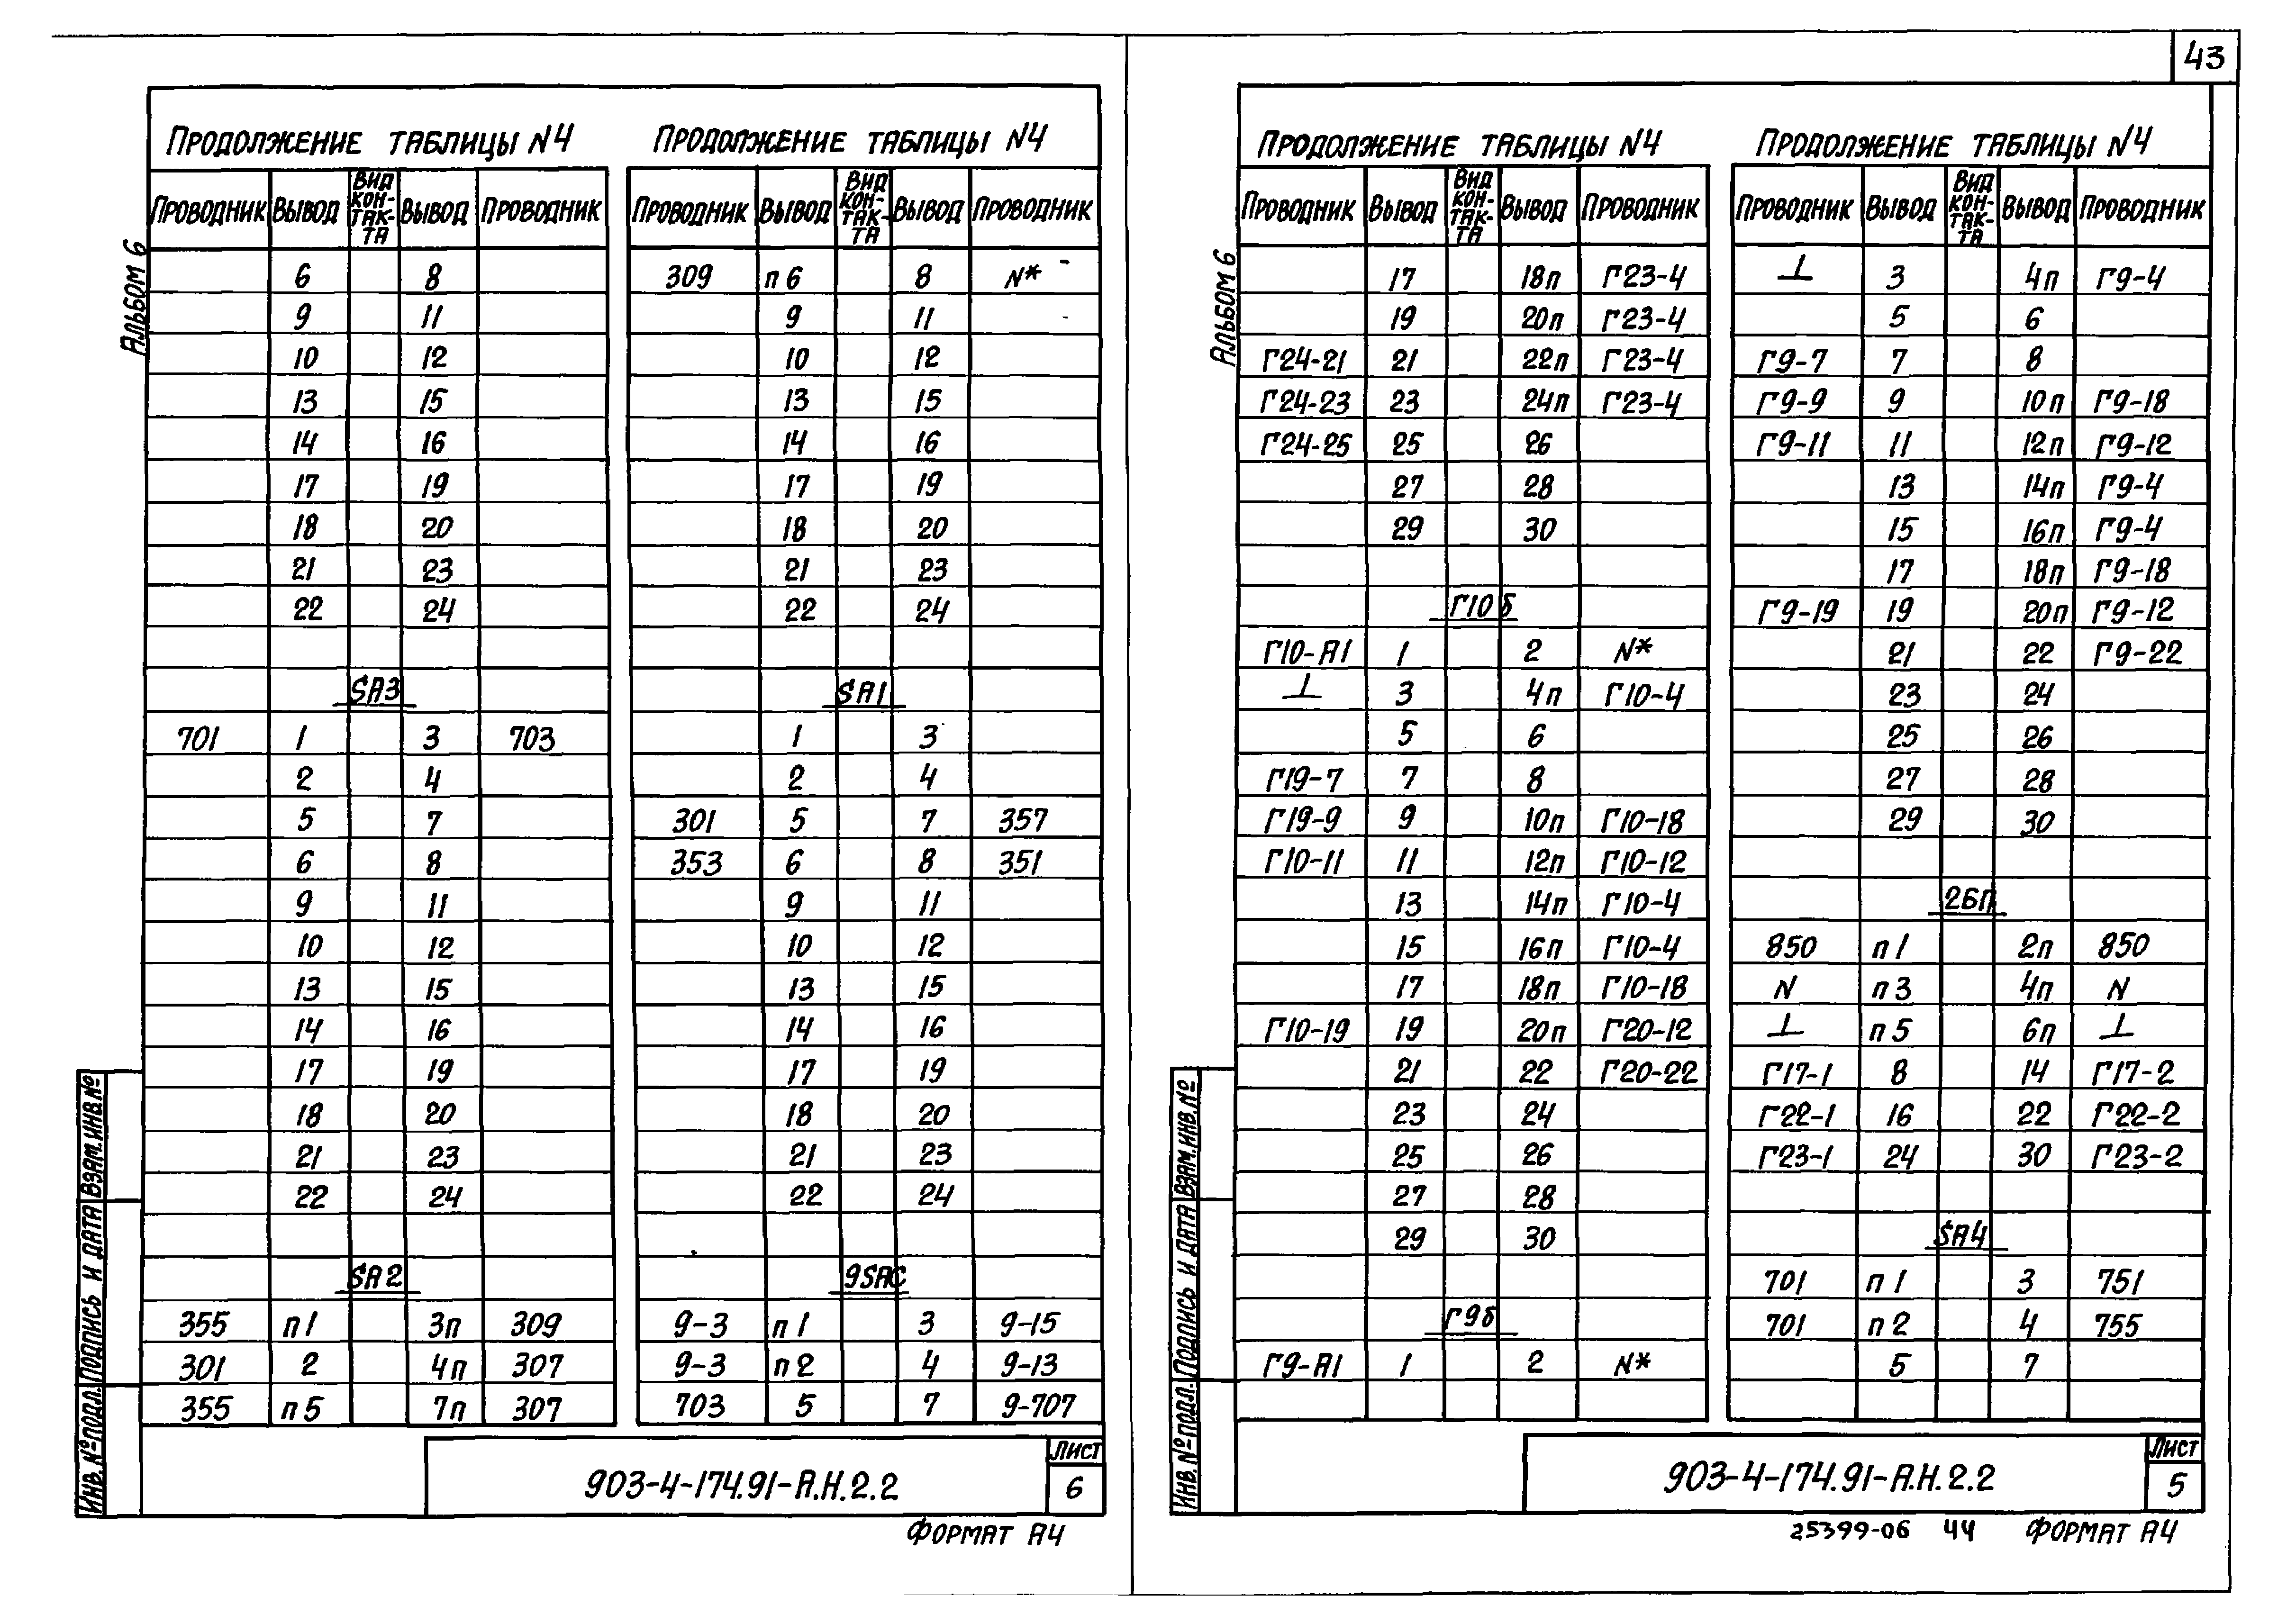 43
Альбом 6
Продолжение таблицы N4
Проводник Вывод Вид контакта Вывод Проводник
6 8
9 11
10 12
13 15
14 16
17 19
18 20
21 23
22 24
SA3
701 1 3 703
2 4
5 7
6 8
9 11
10 12
13 15
14 16
17 19
18 20
21 23
22 24
SA2
355 п1 3п 309
301 2 4п 307
355 п5 7п 307
Продолжение таблицы N4
Проводник Вывод Вид контакта Вывод Проводник
309 п6 8 N*
9 11
10 12
13 15
14 16
17 19
18 20
21 23
22 24
SA1
1 3
2 4
301 5 7 357
353 6 8 351
9 11
10 12
13 15
14 16
17 19
18 20
21 23
22 24
9SAC
9-3 п1 3 9-15
9-3 п2 4 9-13
703 5 7 9-707
Инв. № подл. Подпись и дата Взам. инв. №
903-4-174.91-А.Н.2.2
Лист
6
Формат А4
Альбом 6
Продолжение таблицы N4
Проводник Вывод Вид контакта Вывод Проводник
17 18п Г23-4
19 20п Г23-4
Г24-21 21 22п Г23-4
Г24-23 23 24п Г23-4
Г24-25 25 26
27 28
29 30
Г10б
Г10-А1 1 2 N*
⊥ 3 4п Г10-4
5 6
Г19-7 7 8
Г19-9 9 10п Г10-18
Г10-11 11 12п Г10-12
13 14п Г10-4
15 16п Г10-4
17 18п Г10-18
Г10-19 19 20п Г20-12
21 22 Г20-22
23 24
25 26
27 28
29 30
Г9б
Г9-А1 1 2 N*
Продолжение таблицы N4
Проводник Вывод Вид контакта Вывод Проводник
⊥ 3 4п Г9-4
5 6
Г9-7 7 8
Г9-9 9 10п Г9-18
Г9-11 11 12п Г9-12
13 14п Г9-4
15 16п Г9-4
17 18п Г9-18
Г9-19 19 20п Г9-12
21 22 Г9-22
23 24
25 26
27 28
29 30
2БП
850 п1 2п 850
N п3 4п N
⊥ п5 6п ⊥
Г17-1 8 14 Г17-2
Г22-1 16 22 Г22-2
Г23-1 24 30 Г23-2
SA4
701 п1 3 751
701 п2 4 755
5 7
Инв. № подл. Подпись и дата Взам. инв. №
903-4-174.91-А.Н.2.2
Лист
5
25399-06 44 Формат А4